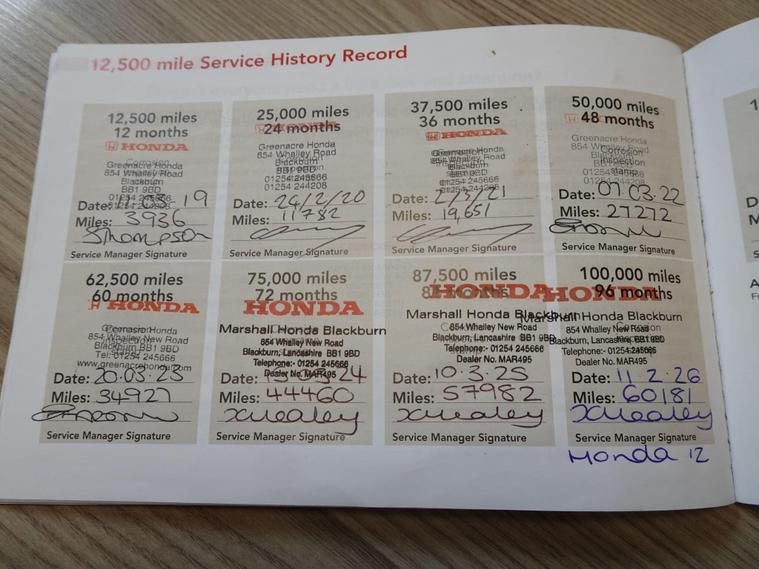 12,500 mile Service History Record
12,500 miles
12 months
HONDA
Greenacre Honda
854 Whalley Road
Blackburn
BB1 9BD
01254 245666
01254 244208
Date: 19
Miles: 3936
Thompson
Service Manager Signature
25,000 miles
24 months
HONDA
Greenacre Honda
854 Whalley Road
Blackburn
BB1 9BD
01254 245666
01254 244208
Date: 24/2/20
Miles: 11782
Service Manager Signature
37,500 miles
36 months
HONDA
Greenacre Honda
854 Whalley Road
Blackburn
Date: 2/3/21
Miles: 19,651
Service Manager Signature
50,000 miles
48 months
HONDA
Greenacre Honda
854 Whalley Road
Blackburn
Corrosion
Inspection
stamp
Date: 01.03.22
Miles: 27272
Service Manager Signature
62,500 miles
60 months
HONDA
Greenacre Honda
854 Whalley New Road
Blackburn BB1 9BD
Tel: 01254 245666
www.greenacrehonda.com
Date: 20.03.23
Miles: 34927
Service Manager Signature
75,000 miles
72 months
HONDA
Marshall Honda Blackburn
854 Whalley New Road
Blackburn, Lancashire BB1 9BD
Telephone:- 01254 245666
Dealer No. MAR495
Date: 24
Miles: 44460
Service Manager Signature
87,500 miles
HONDA
Marshall Honda Blackburn
854 Whalley New Road
Blackburn, Lancashire BB1 9BD
Telephone:- 01254 245666
Dealer No. MAR495
Date: 10.3.25
Miles: 57982
Service Manager Signature
100,000 miles
96 months
HONDA
Marshall Honda Blackburn
854 Whalley New Road
Blackburn, Lancashire BB1 9BD
Telephone:- 01254 245666
Dealer No. MAR495
Date: 11.2.26
Miles: 60181
Service Manager Signature
Honda 12